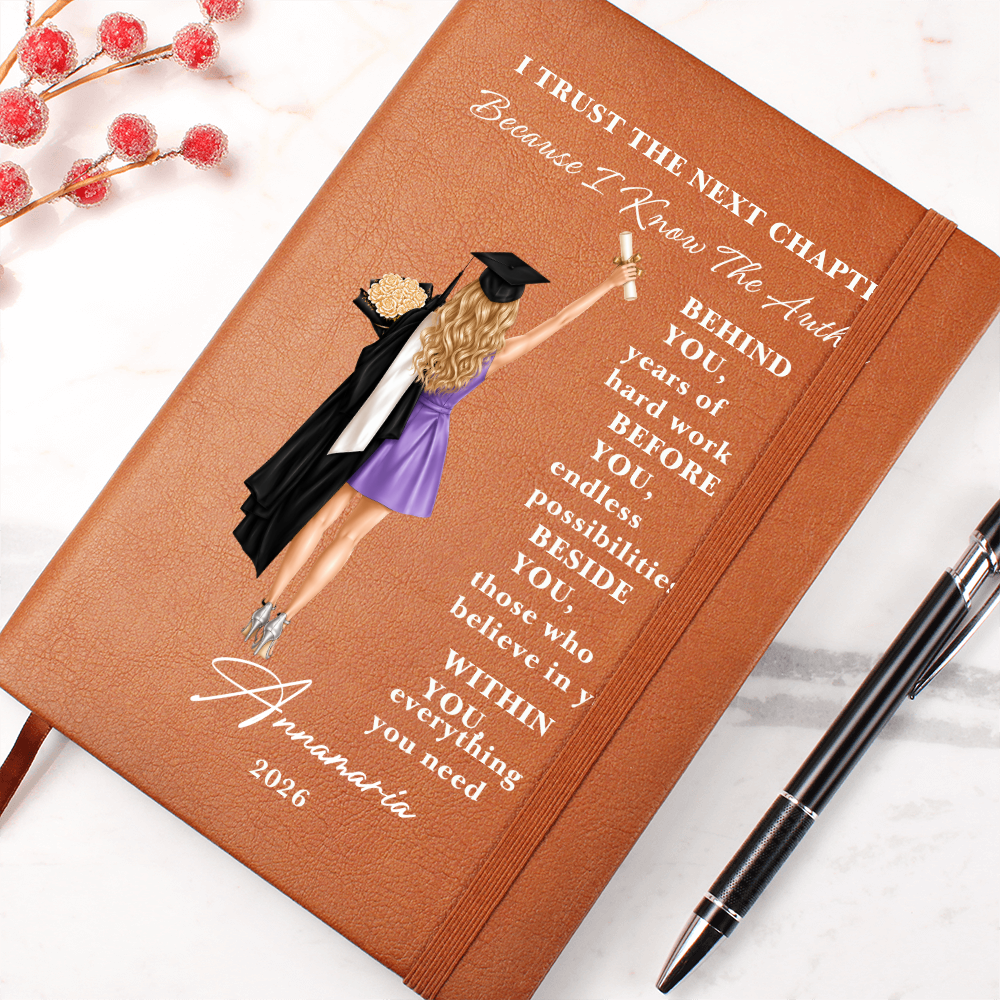 I TRUST THE NEXT CHAPTE
Because I Know The Auth
BEHIND
YOU,
years of
hard work
BEFORE
YOU,
endless
possibilities
BESIDE
YOU,
those who
believe in y
WITHIN
YOU,
everything
you need
Annamaria
2026